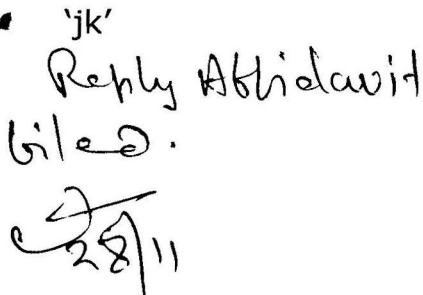 'jk'
Reply Affidavit
filed.
28/11